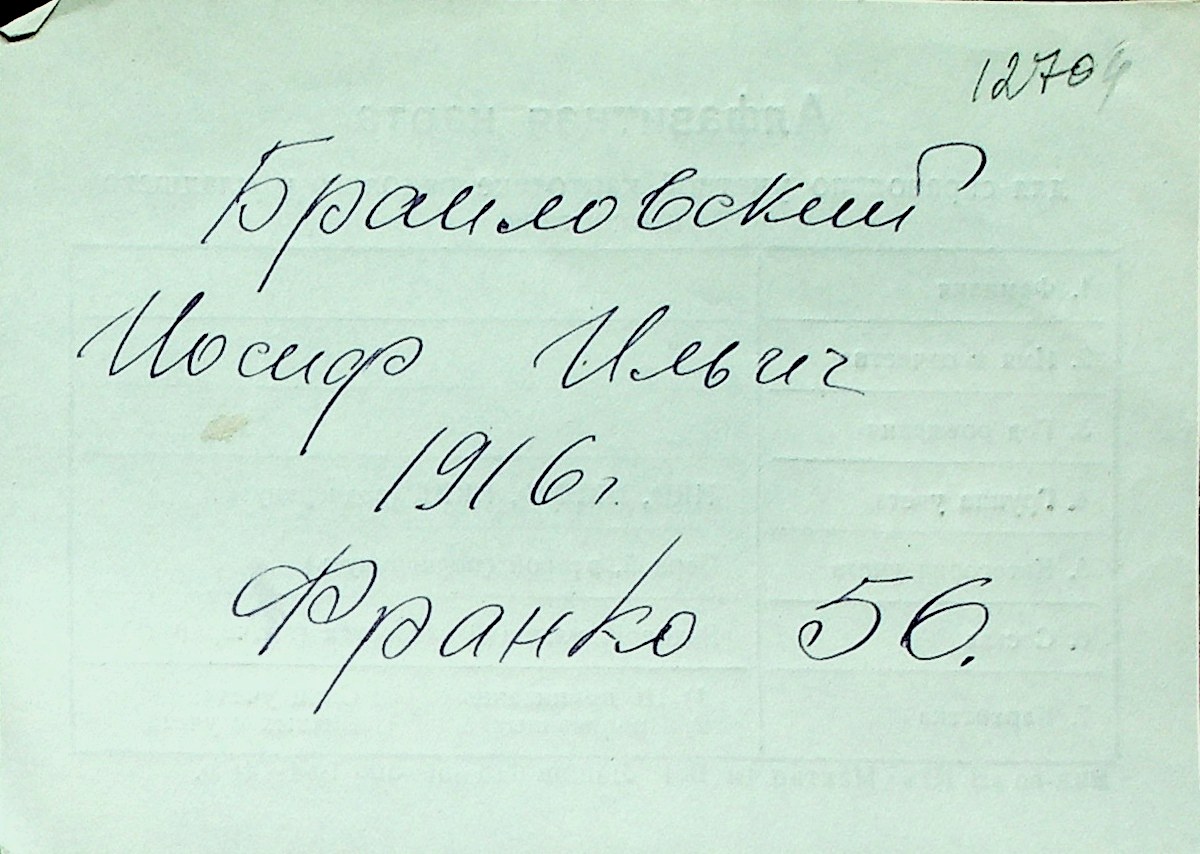 12704
Браиловский
Иосиф Ильич
1916г
Франко 56.